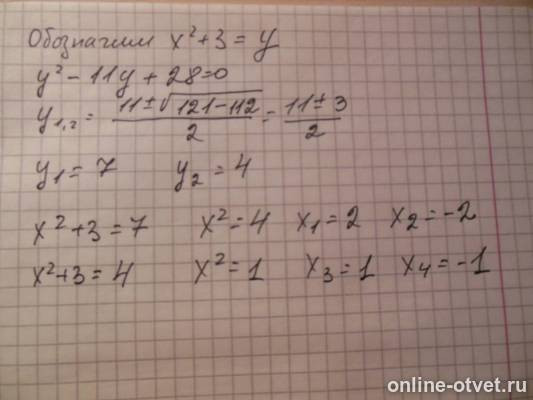 Обозначим x²+3 = y
y² - 11y + 28=0
y₁,₂ = (11±√(121-112))/2 = (11±3)/2
y₁= 7 y₂ = 4
x²+3 = 7 x²=4 x₁=2 x₂=-2
x²+3=4 x²=1 x₃=1 x₄=-1
online-otvet.ru